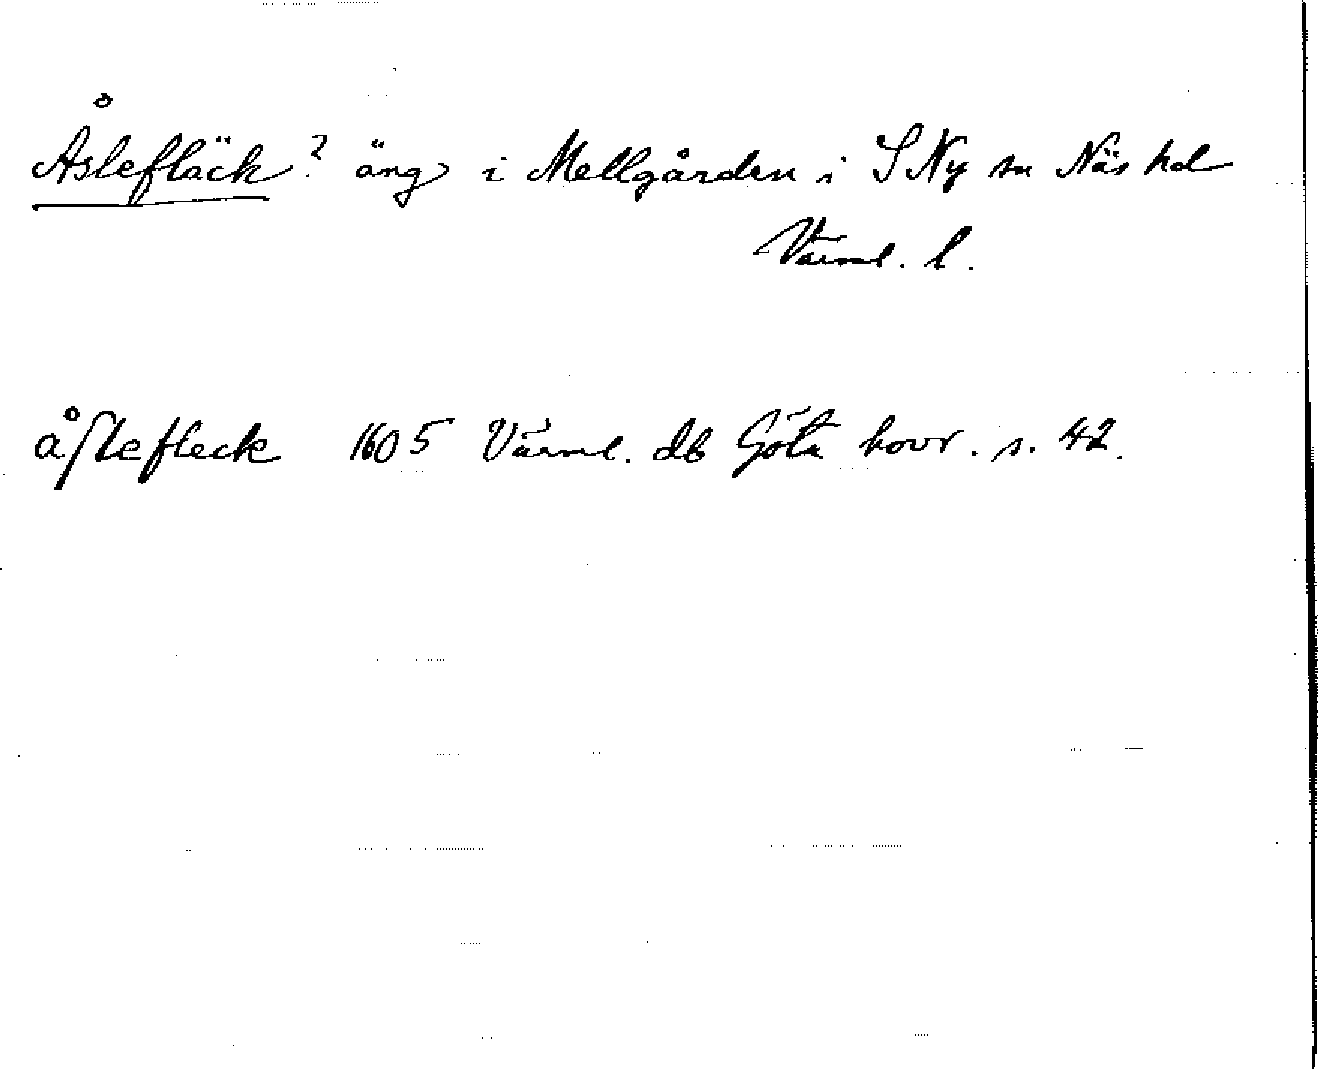 Åslefläck? äng i Mellgården i S Ny sn Näs hd
Värml. l.
åſlefleck 1605 Värml. db Göta hovr. s. 42.